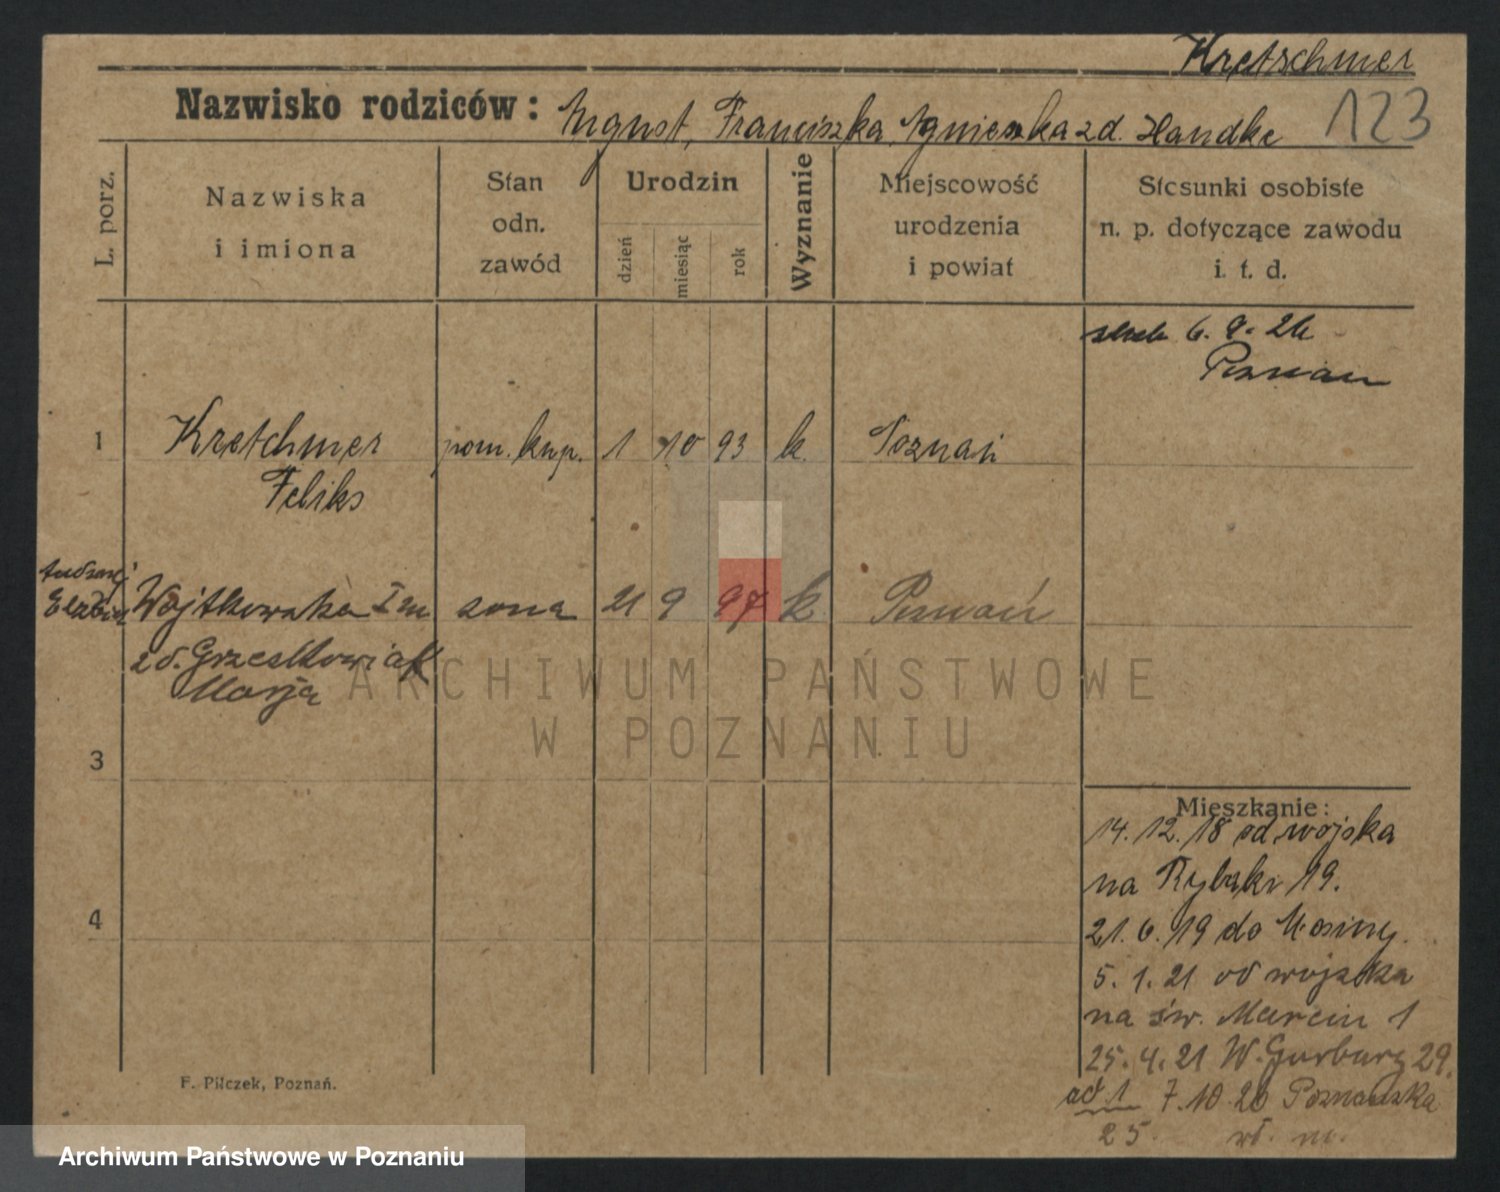 Kretschmer
Nazwisko rodziców: August, Franciszka, Agnieszka zd. Handke
123
L. porz.
Nazwiska
i imiona
Stan
odn.
zawód
Urodzin
dzień
miesiąc
rok
Wyznanie
Miejscowość
urodzenia
i powiat
Stosunki osobiste
n. p. dotyczące zawodu
i. t. d.
6. 9. 26
Poznań
1 Kretchmer pom. kup. 1 10 93 k. Poznań
Feliks
Elżbiety
Wojtkowska żona 21 9 97 k Poznań
zd. Grześkowiak
Marja
ARCHIWUM PAŃSTWOWE
W POZNANIU
3
4
Mieszkanie:
14. 12. 18 od wojska
na Rybaki 19.
21. 6. 19 do Mosiny.
5. 1. 21 od wojska
na św. Marcin 1
25. 4. 21 W. Garbary 29.
ad. 1 7. 10. 26 Poznańska
25. wł. m.
F. Pilczek, Poznań.
Archiwum Państwowe w Poznaniu